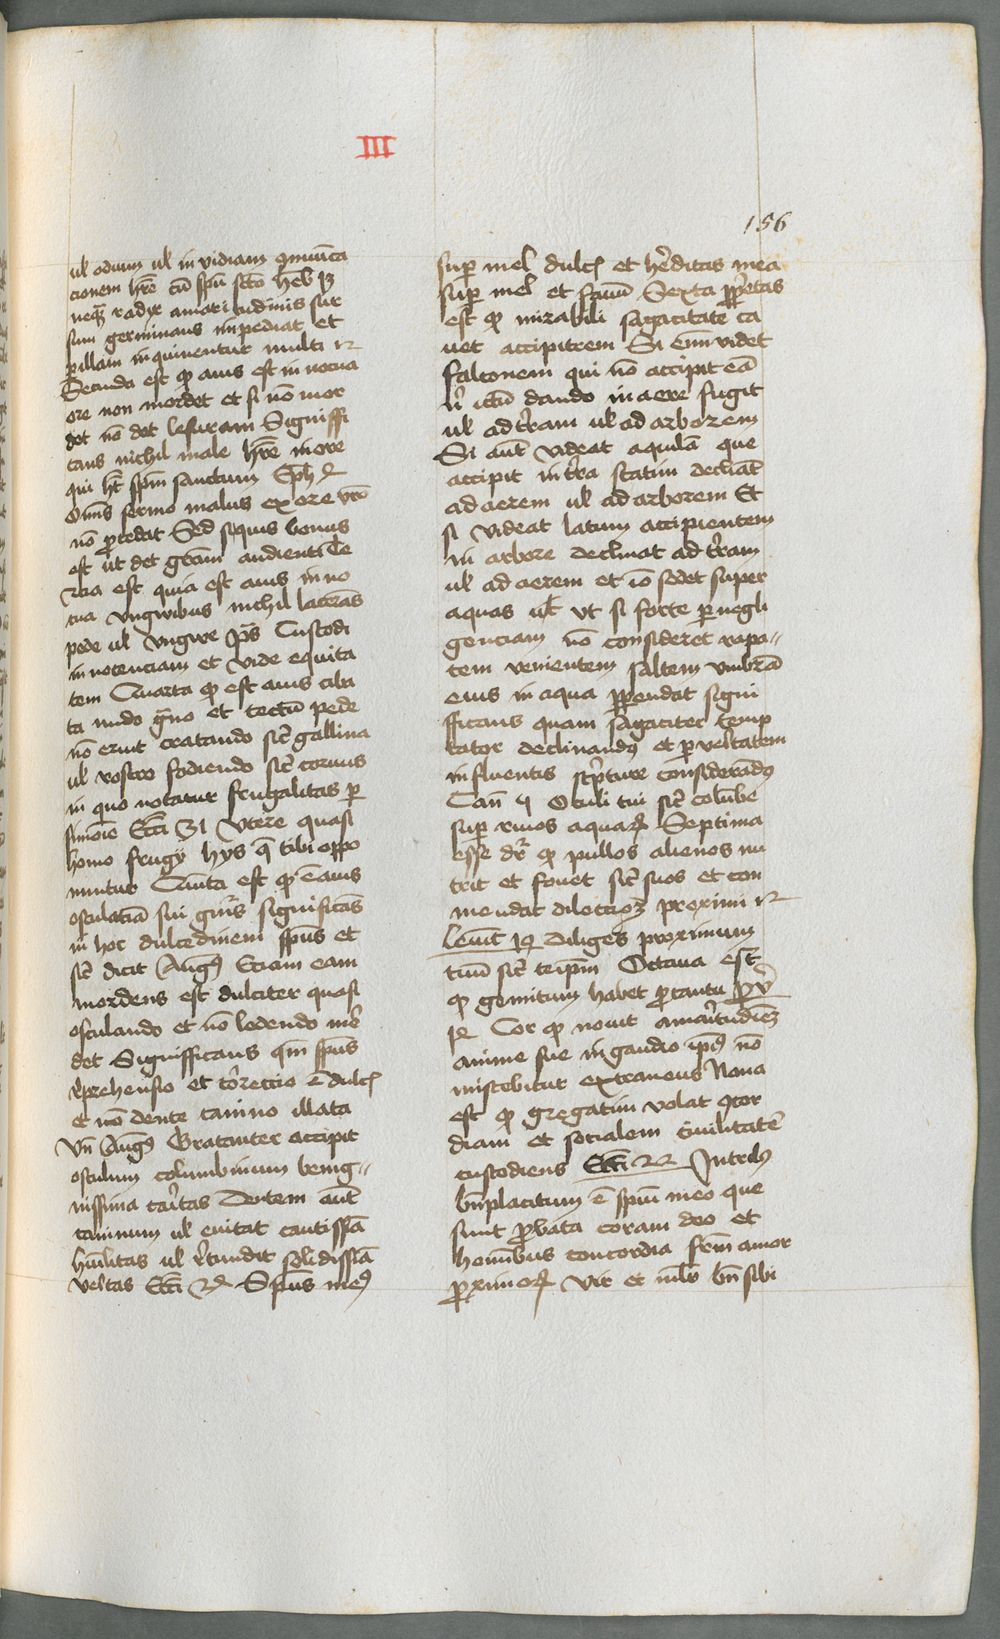 III
156
ul odium ul in vidiam cōmūica
cionem hr̄e cū spū scto heb 12
neq̄ radix amaritudinis sur
sum germinans impediat et
ꝑ illam inquinentur multi ꝛc
Secūda est qꝫ auis est in nocua
ore non mordet et si nō mor
det nō det lesuram Signiffi
cans nichil male hr̄e in ore
qui ht spm sanctum Eph 4
Om̄is sermo malus ex ore vr̄o
nō ꝓcedat Sed siquis bonus
est ut det grām audientiꝫ Te
rcia est quia est auis in no
cua vngwibus nichil lacerās
pede ul vngwe p̄s Custodi
innocenciam et vide equita
tem Quarta qꝫ est auis ciba
ta nudo gͣno et tectū pede
nō eruit cratando sic̄ gallina
ul rostro fodiendo sic̄ coruus
in quo notatur frugalitas ꝑ
simonie Ecci 31 Vtere quasi
homo frugi hys q̄ tibi appo
nuntur Quīta est qꝫ ē auis
osculatiā sui gn̄is significās
in hoc dulcedinem spūs et
sic̄ dicit Augꝯ Eciam eam
mordens est dulciter quasi
osculando et nō ledendo mr̄
det Signifficans qm̄ spūs
r̄prehensio et cor̄rectio ē dulcꝭ
et nō dente canino illata
Vn̄ Augꝯ Gratanter accipit
osculum columbinum benig
nissima caritas Dentem aut̄
caninum ul euitat cautissīa
hūilitas ul r̄tundit solidissīa
veritas Ecci 24 Spūs meꝯ
suꝑ mel dulcꝭ et hr̄editas mea
suꝑ mel et fauū Sexta ꝓprietas
est qꝫ mirabili sagacitate ca
uet accipitrem Si em̄ videt
falconem qui nō accipit eā
nͥ ictū dando in aere fugit
ul ad tr̄am ul ad arborem
Si aut̄ videat aquilā que
accipit in tr̄a statim decliāt
ad aerem ul ad arborem Et
si videat latum accipientem
in arbore declinat ad tr̄am
ul ad aerem et iō sedet super
aquas ul̄ vt si forte ꝑ negli
genciam nō consideret rapa
cem venientem saltem vmbrā
eius in aqua ꝑpendat signi
fficans quam sagaciter temp
tator declinandꝯ et ꝑ veritatem
influentis scͥpture considerādꝯ
Can̄ 5 Oculi tui sic̄ colūbe
suꝑ riuos aquaꝝ Septima
esse dr̄ qꝫ pullos alienos nu
trit et fouet sic̄ suos et con
mendat dilectioꝫ proximi ꝛc
Leuit̄ 19 Diliges proximum
tuū sic̄ teipm̄ Octaua est
qꝫ gemitum habet ꝓ cantu ꝓv̄
14 Cor qꝫ nouit amaritudieꝫ
anime sue in gaudio ipꝭ nō
miscebitur extraneus Nona
est qꝫ gregatim volat ꝯcor
diam et socialem ciuilitatē
custodiens Ecci 25 In tribꝯ
bn̄placitum ē spūi meo que
sunt ꝓbata coram deo et
hom̄ibus concordia fr̄m amor
ꝓximoꝝ vir et mlr̄ bn̄ sibi